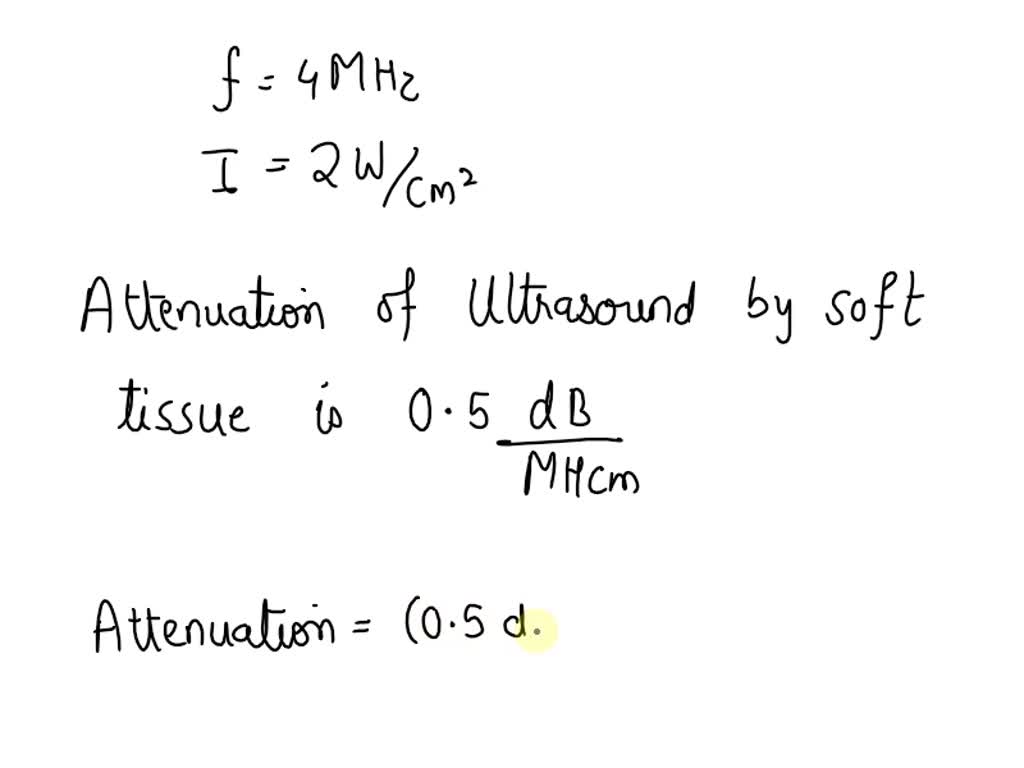 f = 4 MHz
I = 2 W/cm²
Attenuation of Ultrasound by soft
tissue is 0.5 dB
MHcm
Attenuation = (0.5 d.